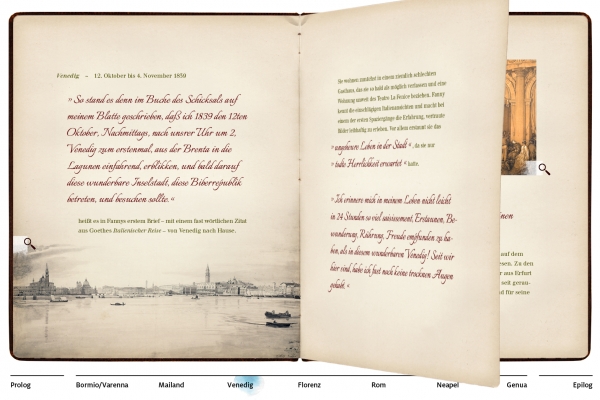 Venedig – 12. Oktober bis 4. November 1839
» So stand es denn im Buche des Schicksals auf
meinem Blatte geschrieben, daß ich 1839 den 12ten
Oktober, Nachmittags, nach unsrer Uhr um 2,
Venedig zum erstenmal, aus der Brenta in die
Lagunen einfahrend, erblicken, und bald darauf
diese wunderbare Inselstadt, diese Biberrepublik
betreten, und besuchen sollte. «
heißt es in Fannys erstem Brief – mit einem fast wörtlichen Zitat
aus Goethes Italienischer Reise – von Venedig nach Hause.
Sie wohnen zunächst in einem ziemlich schlechten
Gasthaus, das sie so bald als möglich verlassen und eine
Wohnung unweit des Teatro La Fenice beziehen. Fanny
kennt die einschlägigen Italienansichten und macht bei
einem der ersten Spaziergänge die Erfahrung, vertraute
Bilder leibhaftig zu erleben. Vor allem erstaunt sie das
» ungeheure Leben in der Stadt «, da sie nur
» todte Herrlichkeit erwartet « hatte.
» Ich erinnere mich in meinem Leben nicht leicht
in 24 Stunden so viel Erstaunen, Be-
wunderung, Rührung, Freude empfunden zu ha-
ben, als in diesem wunderbaren Venedig! Seit wir
hier sind, habe ich fast noch keine trocknen Augen
gehabt. «
inen
auf dem
esen. Zu den
r aus Erfurt
seit gerau-
t für seine
Prolog
Bormio/Varenna
Mailand
Venedig
Florenz
Rom
Neapel
Genua
Epilog